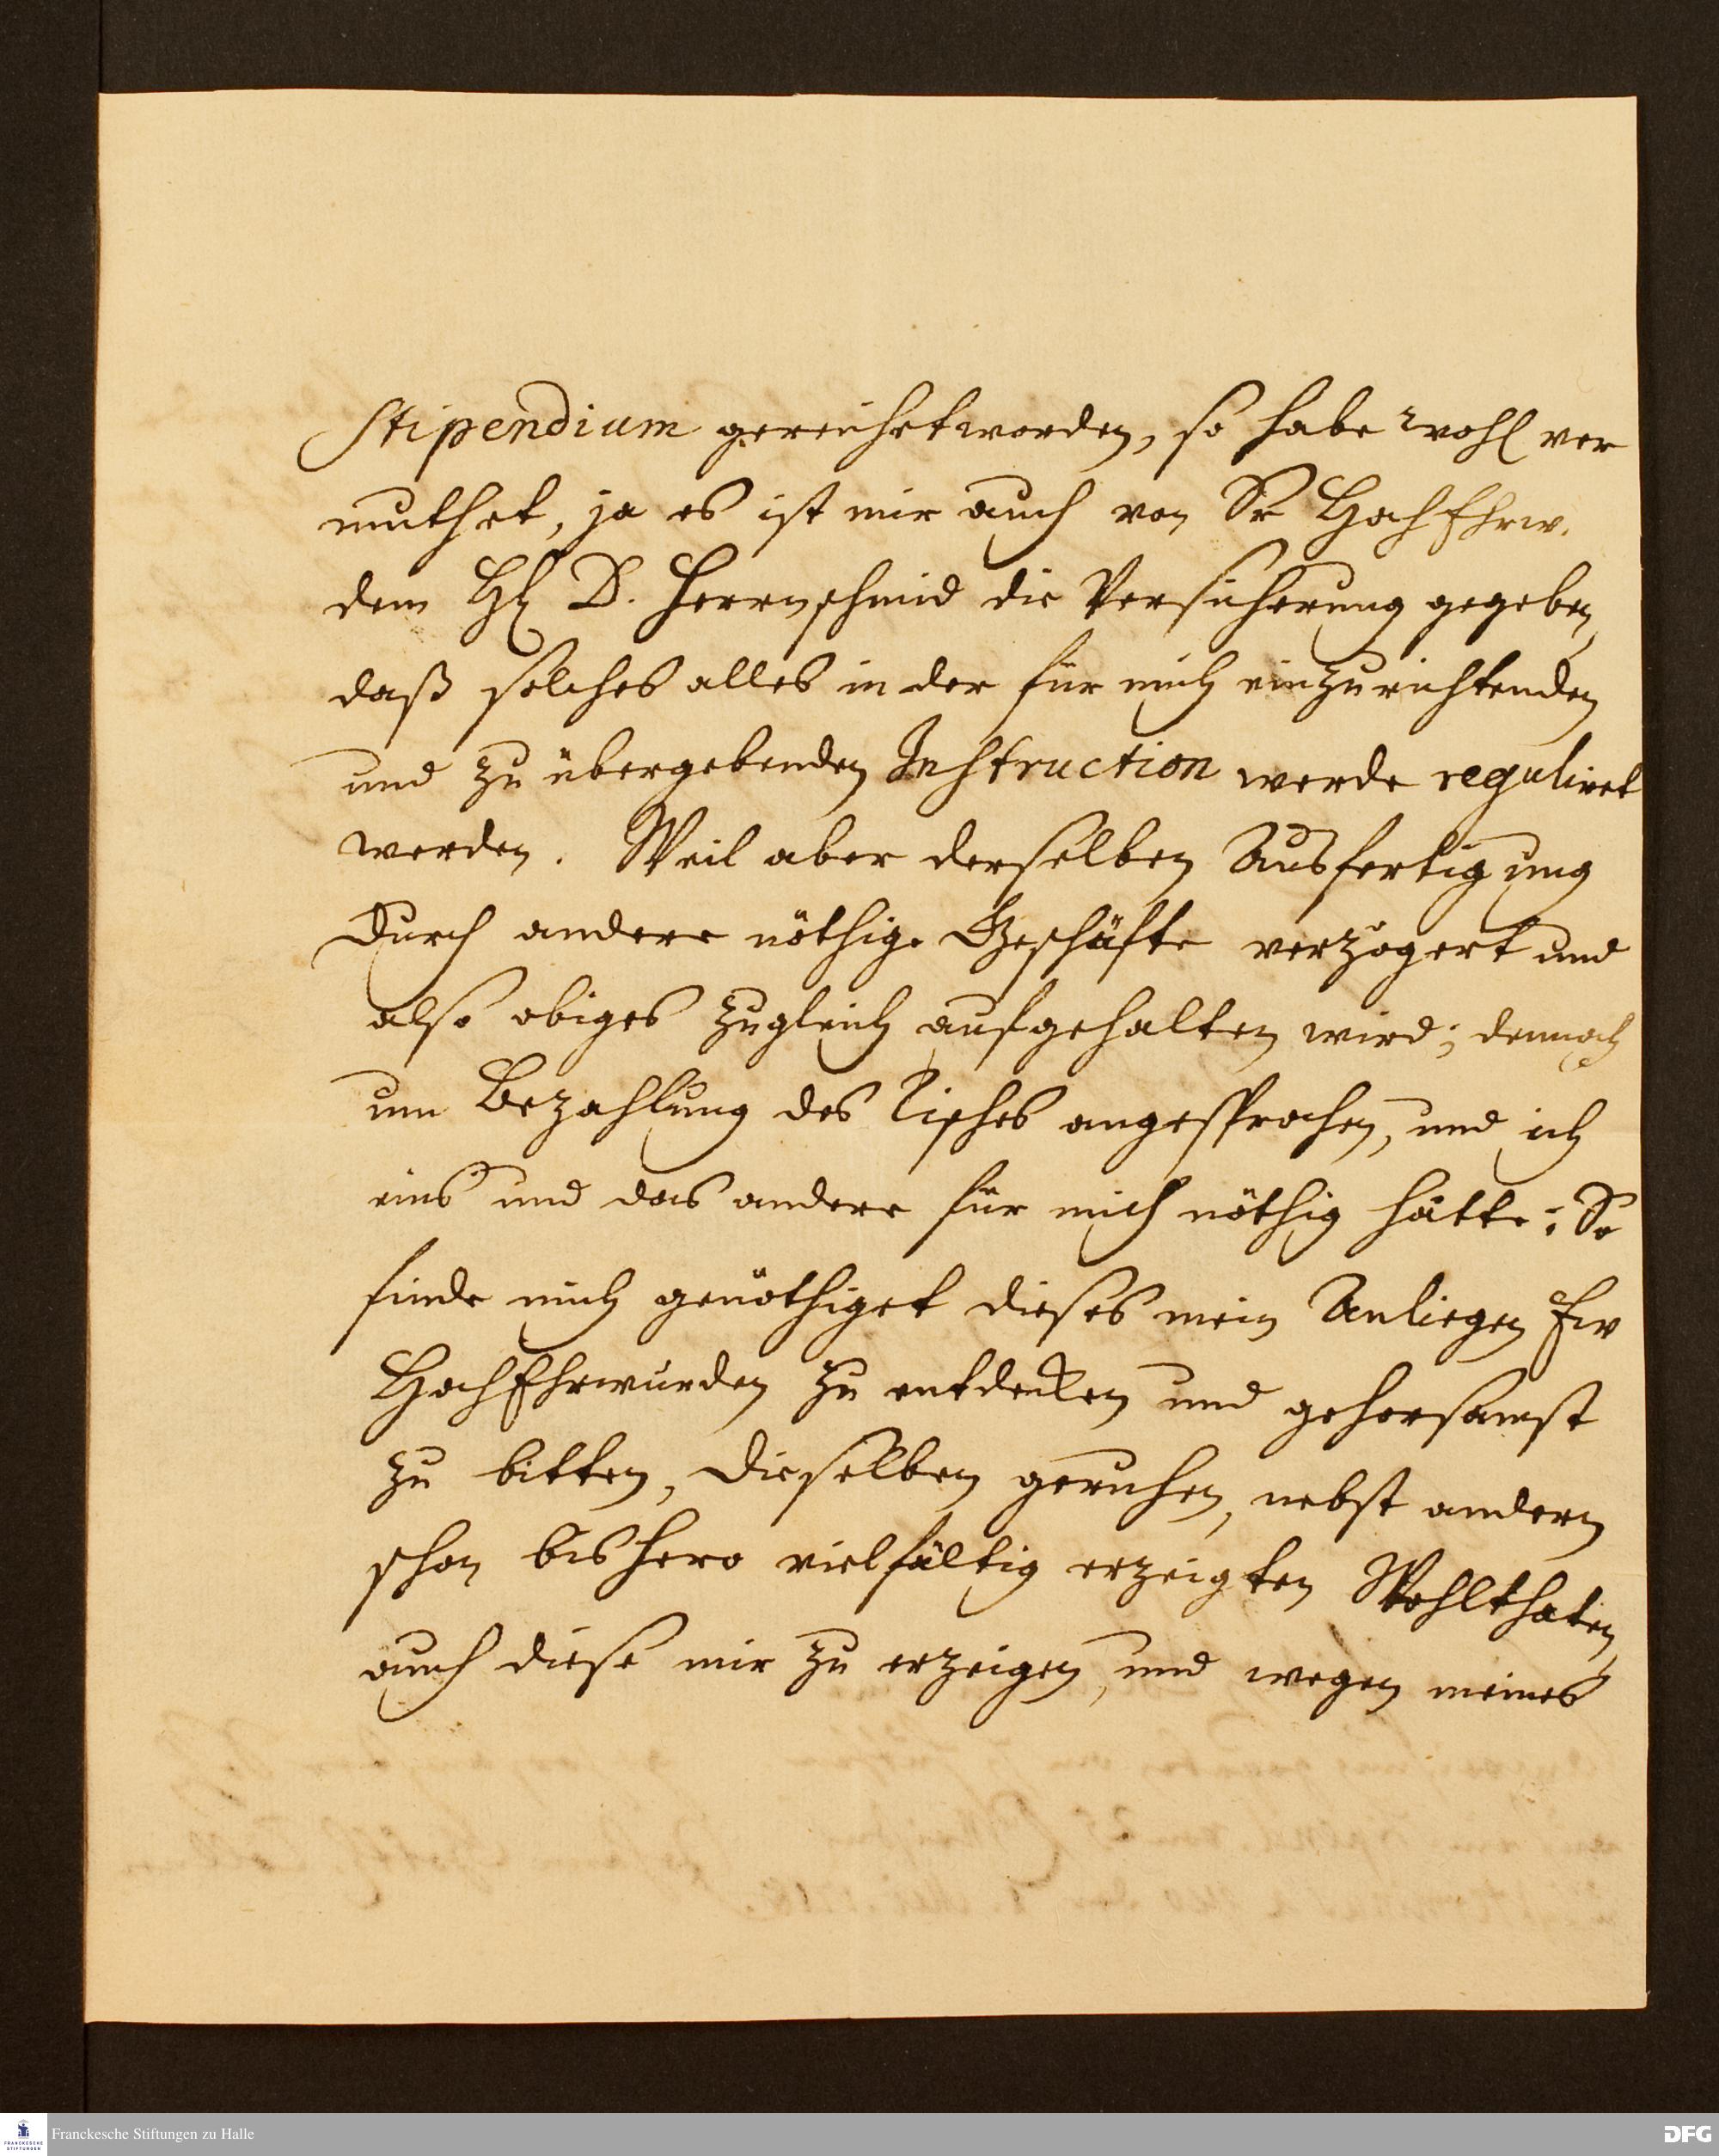 Stipendium gereichet worden, so habe wohl ver
muthet, ja es ist mir auch von Sr HochEhrw.
dem H D. Herrnschmid die Versicherung gegeben,
daß solches alles in der für mich einzurichtenden
und zu übergebenden Instruction werde reguliret
werden. Weil aber derselben Ausfertigung
durch andere nöthige Geschäfte verzögert und
also obiges zugleich aufgehalten wird; dennoch
um Bezahlung des Tisches angesprochen, und ich
eins und das andere für mich nöthig hätte: So
finde mich genöthiget dieses mein Anliegen Ew
HochEhrwürden zu entdecken und gehorsamst
zu bitten, dieselben geruhen, nebst andern
schon bishero vielfältig erzeigten Wohlthaten,
auch diese mir zu erzeigen, und wegen meines
FRANCKESCHE
STIFTUNGEN
Franckesche Stiftungen zu Halle
DFG